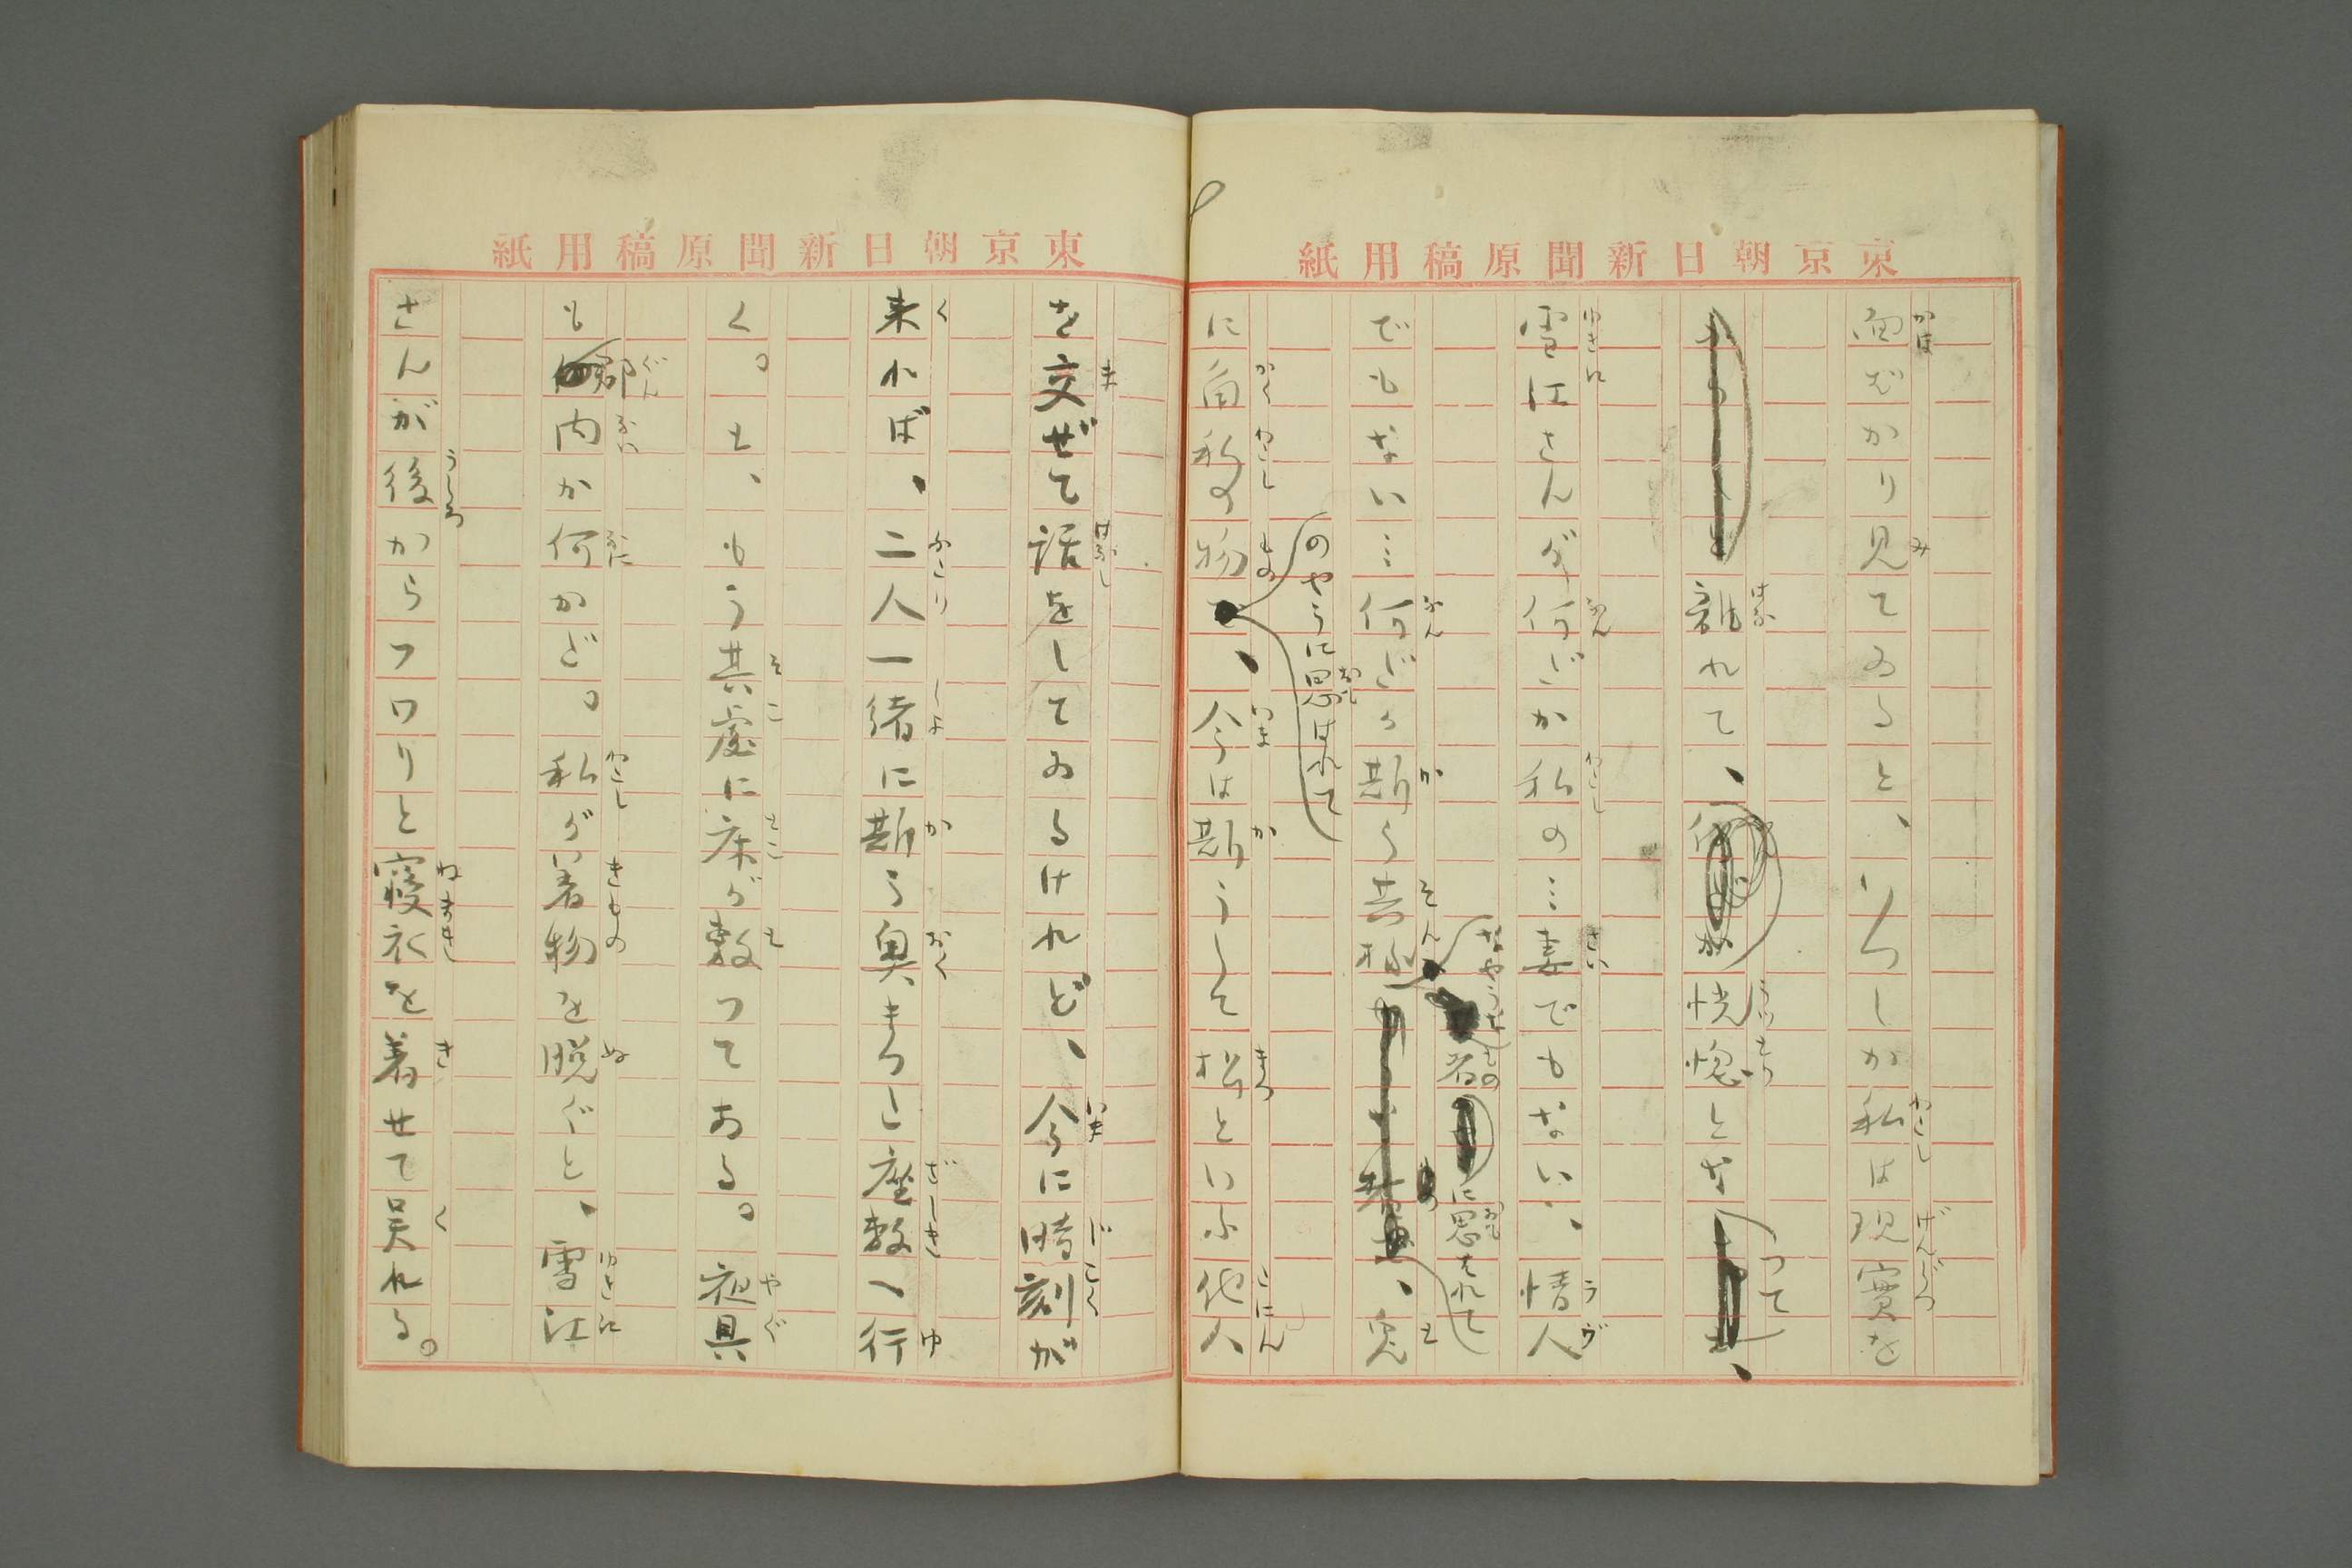 東京朝日新聞原稿用紙
面ばかり見てゐると、いつしか私は現實を
離れて、恍惚となつて、
雪江さんが何だか私の…妻でもない、情人
でもない…何だか斯う其様なやうな者に思はれて、兎
に角私の物のやうに思はれて、今は斯うして松といふ他人
東京朝日新聞原稿用紙
を交ぜて話をしてゐるけれど、今に時刻が
来れば、二人一緒に斯う奥まつた座敷へ行
く。と、もう其處に床が敷つてある。夜具
も郡内か何かだ。私が着物を脱ぐと、雪江
さんが後からフワリと寝衣を着せて呉れる。